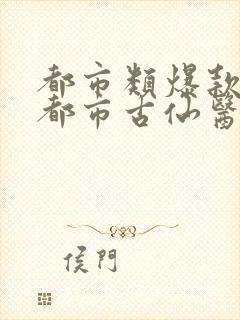 都市類爆款
都市古仙醫
侯門